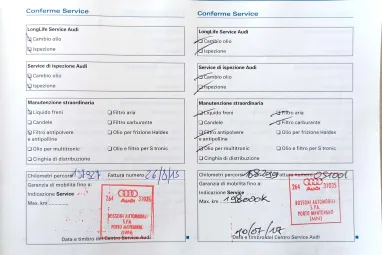 Conferme Service
LongLife Service Audi
Cambio olio
Ispezione
Service di ispezione Audi
Cambio olio
Ispezione
Manutenzione straordinaria
Liquido freni
Filtro aria
Candele
Filtro carburante
Filtro antipolvere e antipolline
Olio per frizione Haldex
Olio per multitronic
Olio per S tronic
Cinghia di distribuzione
Chilometri percorsi
Fattura numero
Garanzia di mobilità fino a:
Indicazione Service
Max. km
264
Audi
31035
BOSSONI AUTOMOBILI
S.P.A.
PORTO MANTOVANO
(MN)
Data e timbro del Centro Service Audi
Conferme Service
LongLife Service Audi
Cambio olio
Ispezione
Service di ispezione Audi
Cambio olio
Ispezione
Manutenzione straordinaria
Liquido freni
Filtro aria
Candele
Filtro carburante
Filtro antipolvere e antipolline
Olio per frizione Haldex
Olio per multitronic
Olio per S tronic
Cinghia di distribuzione
Chilometri percorsi
Fattura numero
Garanzia di mobilità fino a:
Indicazione Service
Max. km
264
Audi
31035
BOSSONI AUTOMOBILI
S.P.A.
PORTO MANTOVANO
(MN)
10/07/17
Data e timbro del Centro Service Audi